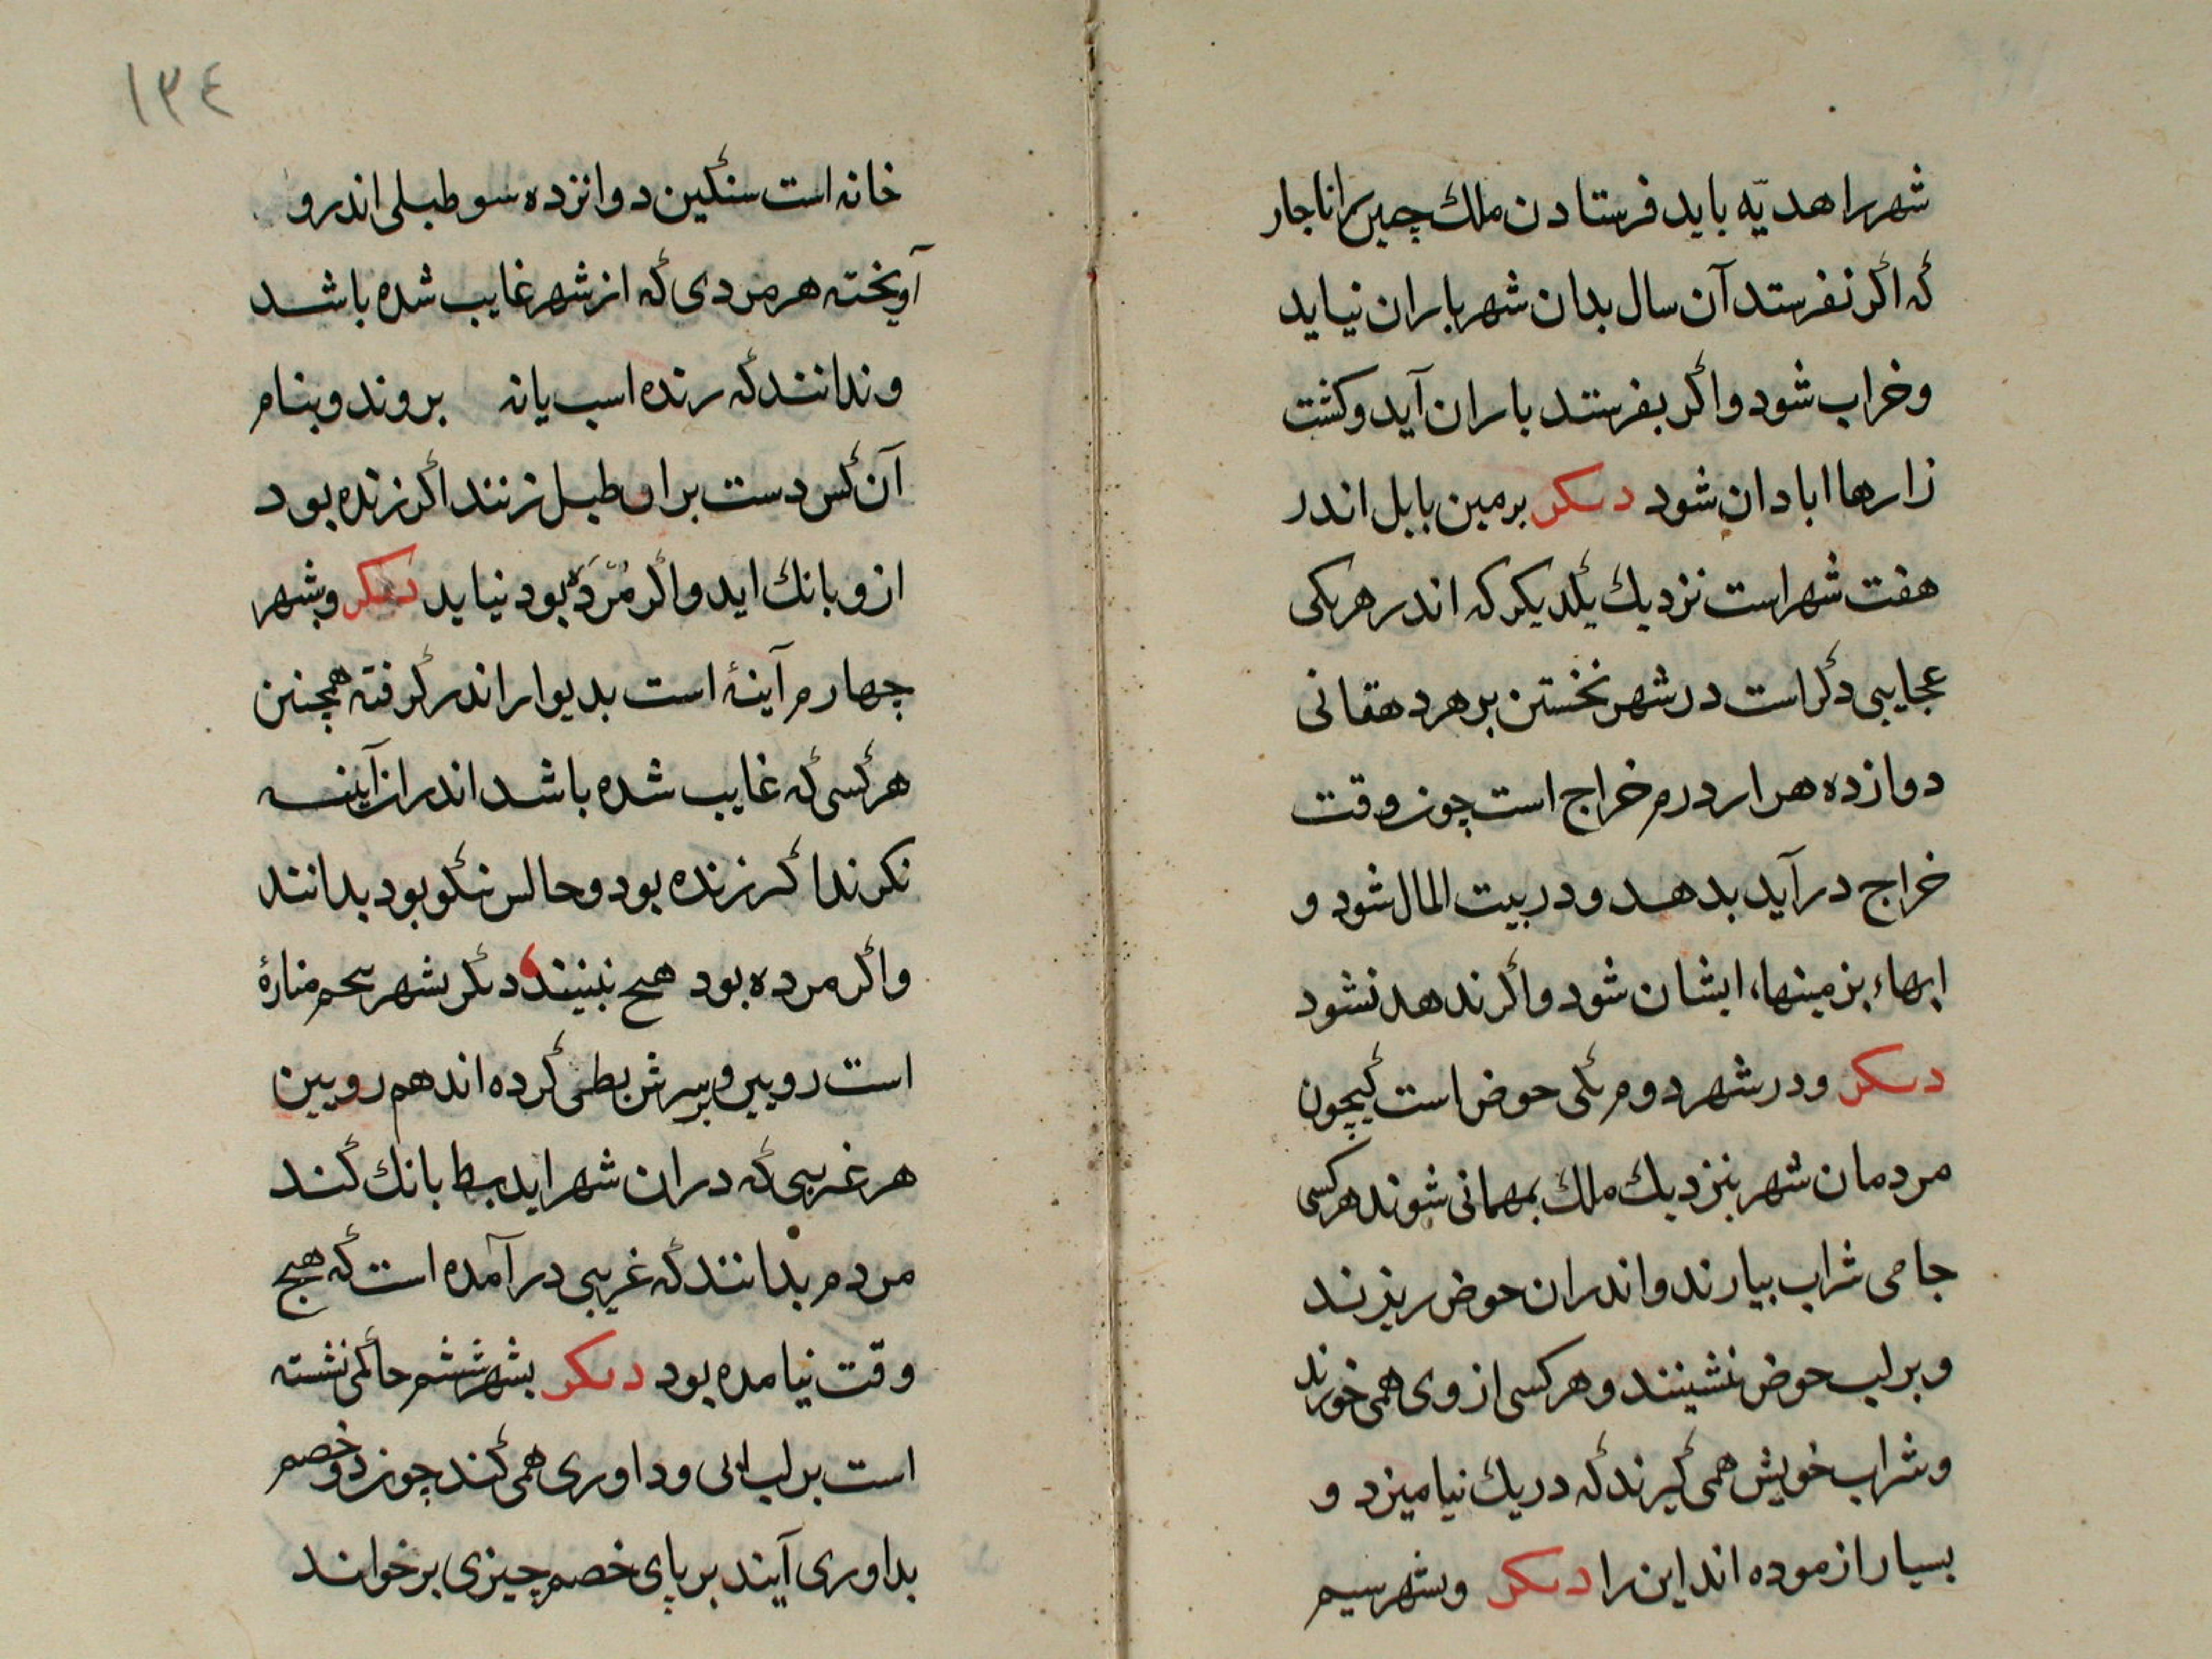 شهر را هدیّه باید فرستادن ملك چین را ناجار
که اکر نفرستد آن سال بدان شهر باران نیاید
وخراب شود واکر بفرستد باران آید وکشت
زارها ابادان شود دیکر برمین بابل اندر
هفت شهراست نزدیك یکدیکر که اندر هریکی
عجایبی دکراست درشهر نخستن بر هر دهقانی
دوازده هزار درم خراج است چون وقت
خراج درآید بدهد ودر بیت المال شود و
ابهاء بزمینها، ایشان شود واکر ندهد نشود
دیکر ودر شهر دوم یکی حوض است کیچون
مردمان شهر بنزدیك ملك بمهمانی شوند هرکسی
جامی شراب بیارند واندران حوض ریزند
وبرلب حوض نشینند وهرکسی ازوی همی خورند
وشراب خویش همی کیرند که دریك نیامیزد و
بسیار ازموده اند این را دیکر وبشهر سیم
١٣٤
خانه است سنکین دوانزده سو طبلی اندرو
آویخته هرمردی که از شهر غایب شده باشد
وندانند که رنده اسب یانه بروند وبنام
آن کس دست بران طبل زنند اکر زنده بود
ازو بانك اید واکر مُرَدَه بود نیاید دیکر وبشهر
چهارم آینۀ است بدیوار اندر کرفته همچنن
هرکسی که غایب شده باشد اندران آینه
نکرند اکر زنده بود وحالس نیکو بود بدانند
واکر مرده بود هیج نبینند دیکر بشهر پنجم منارۀ
است رویین وبرسرش بطی کرده اند هم رویین
هرغریبی که دران شهر اید بط بانك کند
مردم بدانند که غریبی درآمده است که هیج
وقت نیامده بود دیکر بشهر ششم حاکمی نشسته
است برلب ابی وداوری همی کند چون دو خصم
بداوری آیند برپای خصم چیزی برخواند